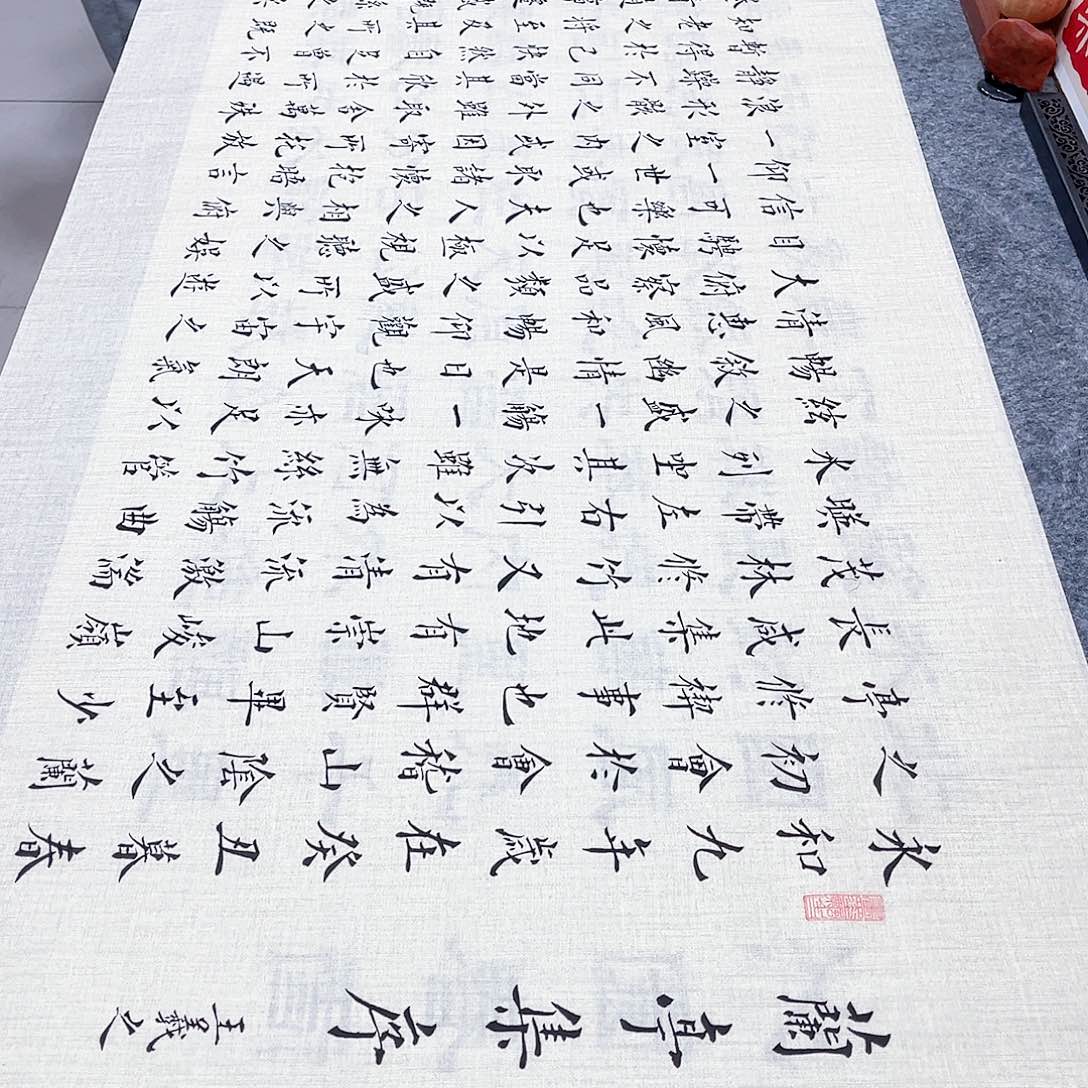 蘭亭集序
王羲之
永和九年歲在癸丑暮春
之初會於會稽山陰之蘭
亭修禊事也群賢畢至少
長咸集此地有崇山峻嶺
茂林修竹又有清流激湍
映帶左右引以為流觴曲
水列坐其次雖無絲竹管
絃之盛一觴一詠亦足以
暢敘幽情是日也天朗氣
清惠風和暢仰觀宇宙之
大俯察品類之盛所以遊
目騁懷足以極視聽之娛
信可樂也夫人之相與俯
仰一世或取諸懷抱晤言
一室之內或因寄所託放
浪形骸之外雖取舍萬殊
靜躁不同當其欣於所遇
暫得於己快然自足曾不
知老之將至及其所之既